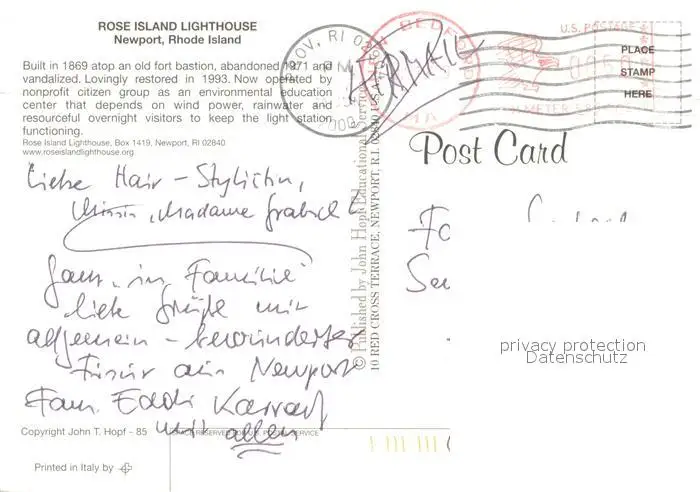 ROSE ISLAND LIGHTHOUSE
Newport, Rhode Island
Built in 1869 atop an old fort bastion, abandoned 1971 and
vandalized. Lovingly restored in 1993. Now operated by
nonprofit citizen group as an environmental education
center that depends on wind power, rainwater and
resourceful overnight visitors to keep the light station
functioning.
Rose Island Lighthouse, Box 1419, Newport, RI 02840
www.roseislandlighthouse.org
Liebe Hair-Stylistin,
Madame
Ganz "in Familie"
liebe Grüße mit
allgemein-bewunderter
Frisur aus Newport
Fam. Eddi
mit allen
Copyright John T. Hopf - 85
SPACE RESERVED FOR U.S. POSTAL SERVICE
Printed in Italy by
© Published by John Hopf Educational Services
10 RED CROSS TERRACE, NEWPORT, R.I. 02840 U.S.A.
PROV, RI 029
PM
2000
AIRMAIL
NEW BEDFORD
MA
U.S. POSTAGE
METER
PLACE
STAMP
HERE
Post Card
privacy protection
Datenschutz